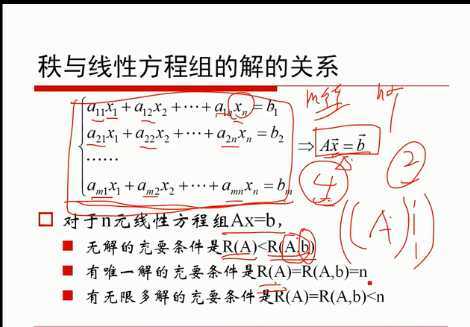 秩与线性方程组的解的关系
a₁₁x₁ + a₁₂x₂ + ⋯ + a₁ₙxₙ = b₁
a₂₁x₁ + a₂₂x₂ + ⋯ + a₂ₙxₙ = b₂
⋯⋯
aₘ₁x₁ + aₘ₂x₂ + ⋯ + aₘₙxₙ = bₘ
⇒ Ax⃗ = b⃗
④ ②
(A)
对于n元线性方程组Ax=b,
无解的充要条件是R(A)<R(A,b)
有唯一解的充要条件是R(A)=R(A,b)=n
有无限多解的充要条件是R(A)=R(A,b)<n